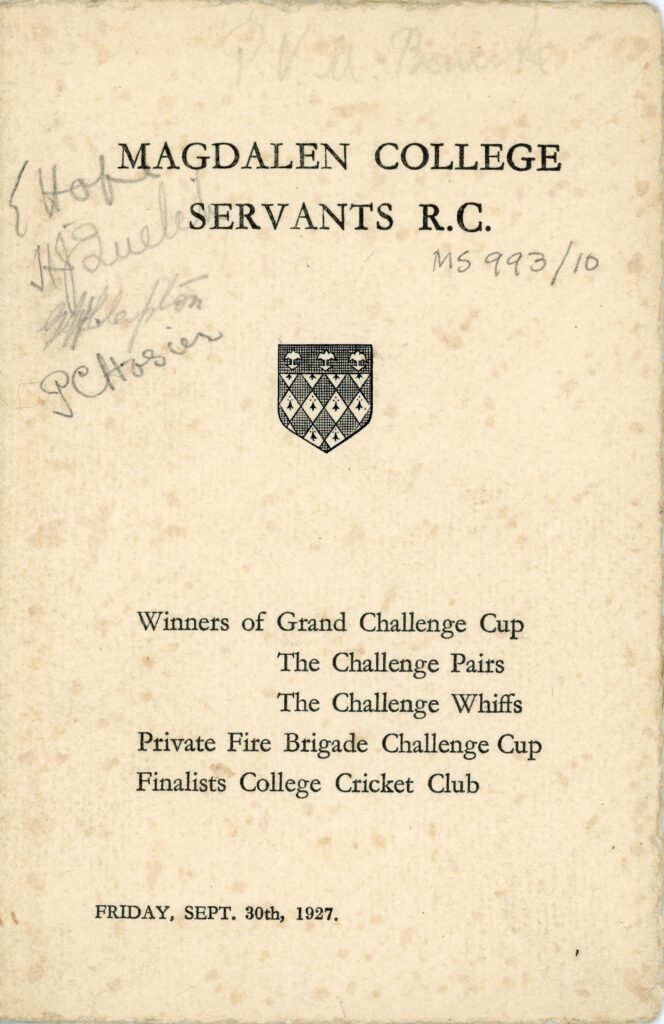 P. V. M. Benecke
MAGDALEN COLLEGE
SERVANTS R.C.
Hope
MS 993/10
PC Hosier
Winners of Grand Challenge Cup
The Challenge Pairs
The Challenge Whiffs
Private Fire Brigade Challenge Cup
Finalists College Cricket Club
FRIDAY, SEPT. 30th, 1927.